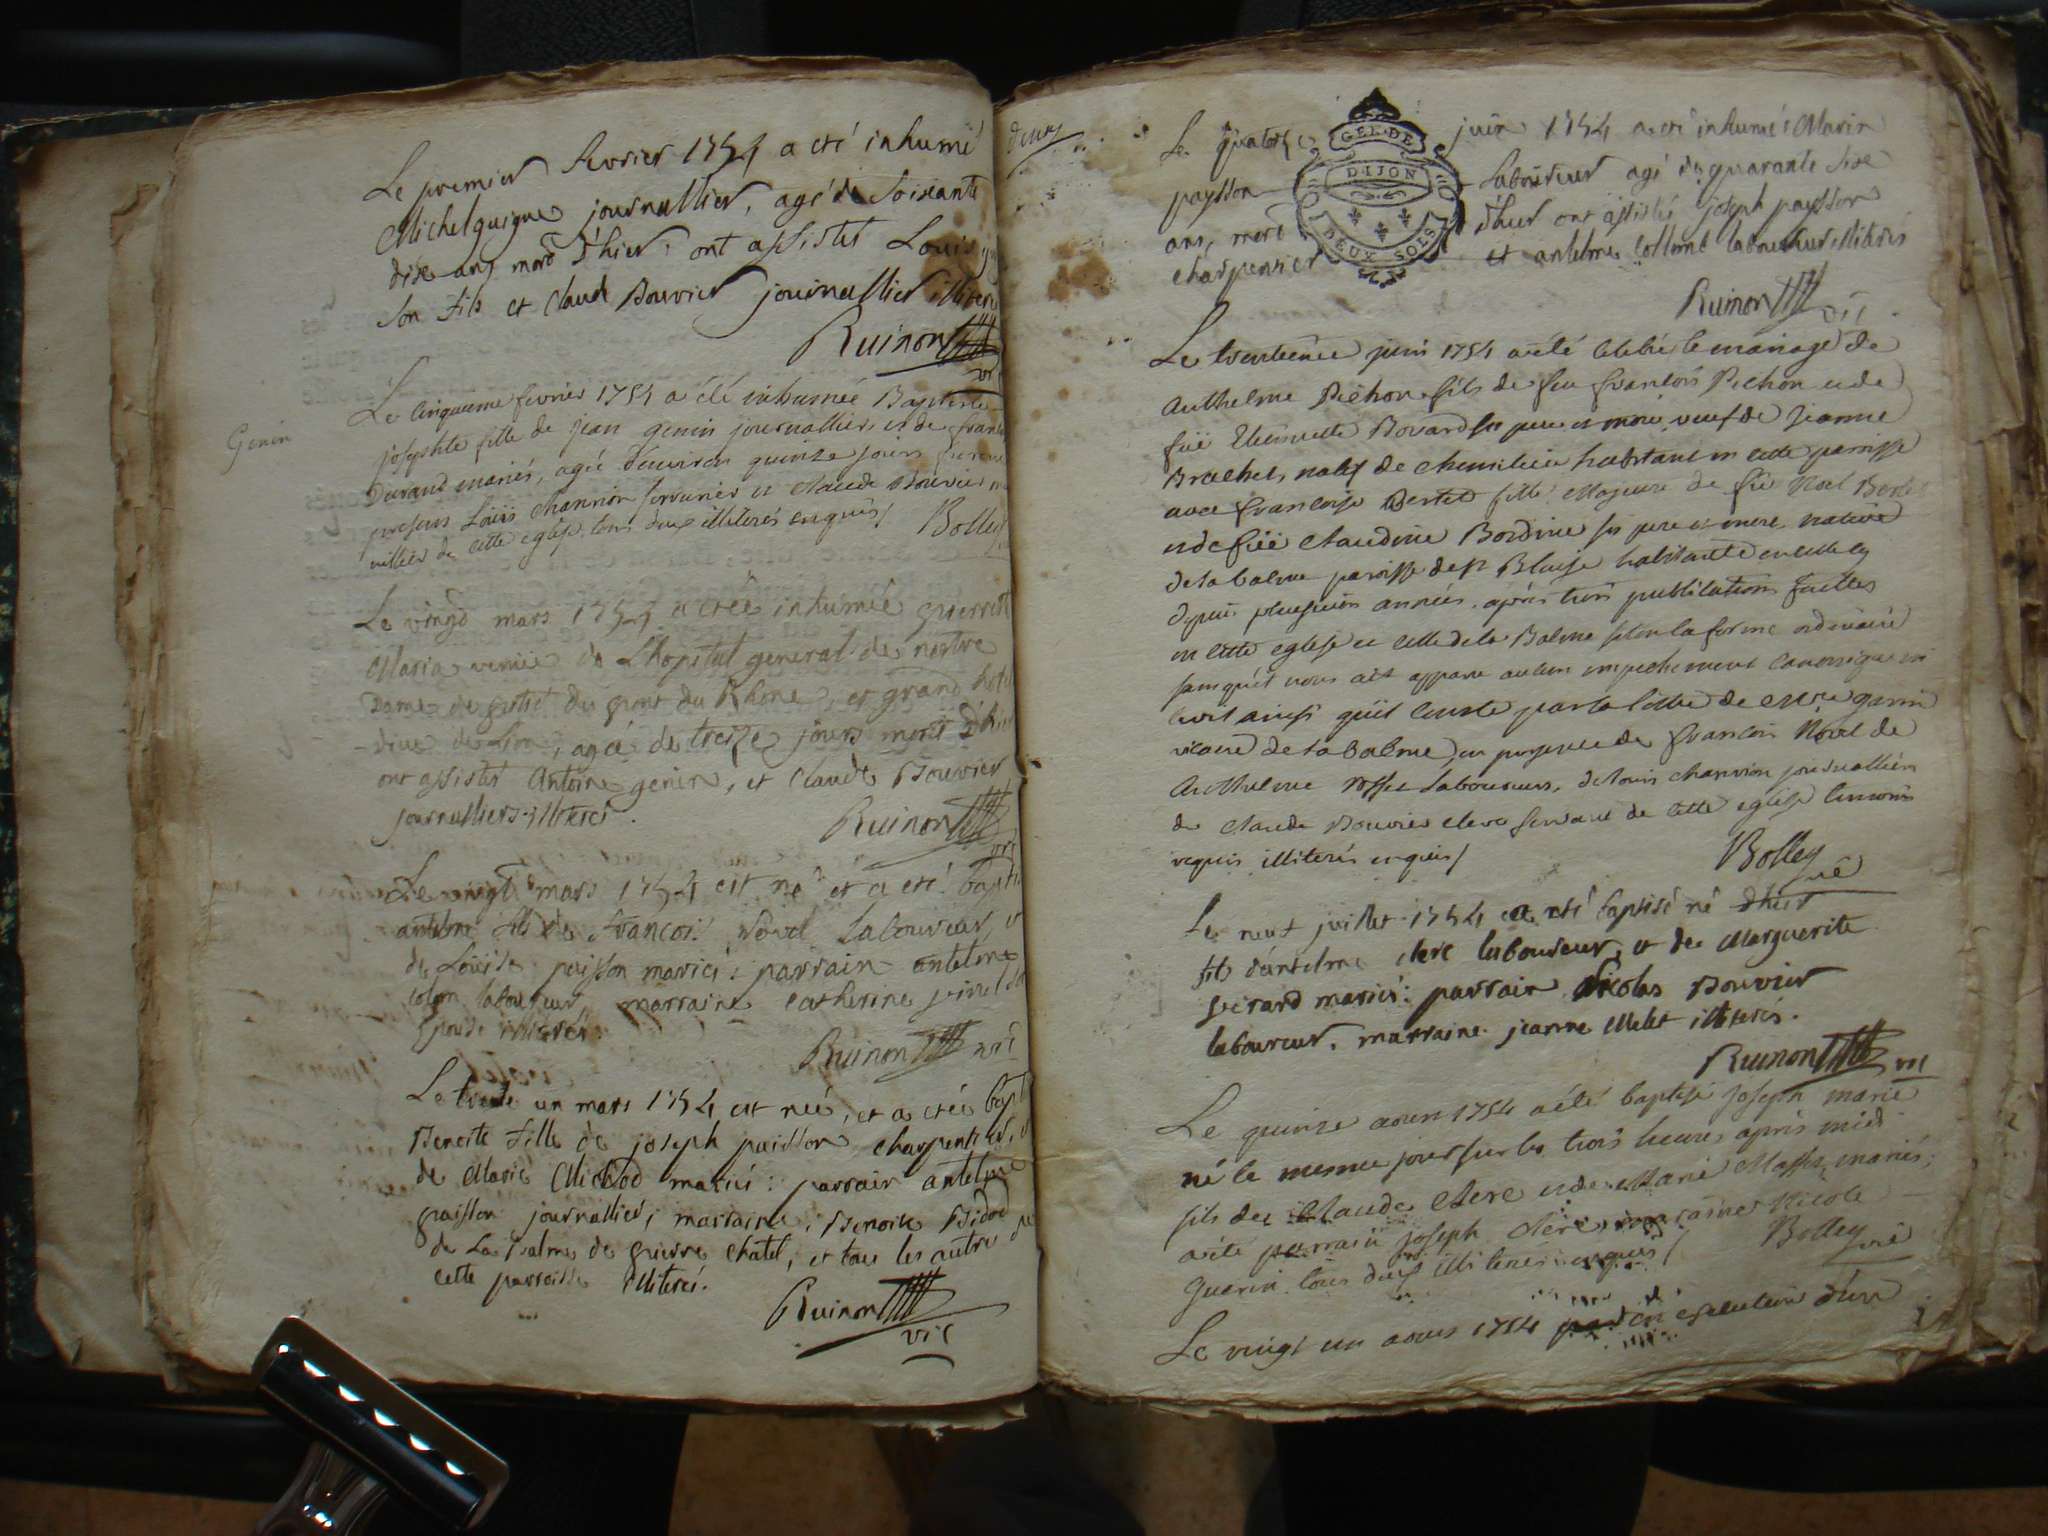 Le premier fevrier 1754 a eté inhumé
Michel guigue journallier, agé de soixante
dix ans mort d'hier, ont assistes Louis
son fils et Claude Bouvier journallier illiteres
Ruinon
vic
Genin
Le cinquieme fevrier 1754 a été inhumée Baptiste
josephte fille de jean genin journallier et de
Durand mariés, agée d'environ quinze jours furent
presens Loüis channion serrurier et claude Bouvier
de cette eglise tous deux illiterés enquis/
Bolley
Le vingt mars 1754 a etée inhumée pierrette
Maria venüe de L'hopital general de nostre
Dame de pitié du pont du Rhône, et grand hotel
dieu de Lion, agée de treize jours mort d'hier
ont assistes Antoine genin, et Claude Bouvier
journalliers illiteres.
Ruinon
vic
Le vingt mars 1754 est né et a eté bapt
antelme fils de francois Novel Laboureur, et
de Loüise païsson mariés: parrain antelme
colon laboureur marraine Catherine
illiterés.
Ruinon vic
Le trente un mars 1754 est neé, et a etée bapt
Benoite fille de joseph païsson charpentier, et
de Marie Michod mariés: parrain antelme
païsson journallier, marraine, Benoite Bidod
de La Balme de pierre chatel, et tous les autre de
cette parroisse illiterés.
Ruinon
vic
deux
Le quatorze juin 1754 a eté inhumé Marin
paysson Laboureur agé de quarante six
ans, mort d'hier ont assistés joseph paysson
charpentier et antelme Collomb laboureur illiterés
GEN. DE
DIJON
DEUX SOLS
Ruinon vic
Le trentieme juin 1754 a été celebré le mariage de
Anthelme Pichon fils de feu francois Pichon et de
füe Etiennette Bovard ses pere et mere, veuf de jeanne
Brachet, natif de habitant en cette parroisse
avec francoise Bertet fille Majeure de fû Noël Bertet
et de füe Claudine Bordine ses pere et mere native
de la balme paroisse de st Blaise habitante en celle cy
depuis plusieurs années, après trois publications faittes
en cette eglise et celle de la Balme selon la forme ordinaire
sans qu'il nous ait apparu aucun empechement canonique ni
civil ainsi qu'il conste par la lettre de Mre garin
vicaire de la balme, en presence de francois Novel de
Anthelme rosset Laboureurs, de louis channion journallier
de Claude Bouvier clerc servant de cette eglise temoins
requis illiterés enquis/
Bolley
curé
Le neuf juillet 1754 a eté baptisé né d'hier
fils d'antelme clerc laboureur, et de Marguerite
Girard mariés: parrain Nicolas Bouvier
laboureur, marraine jeanne Melet illiterés.
Ruinon vic
Le quinze aoust 1754 a été baptisé Joseph marie
né le mesme jour sur les trois heures après midi
fils de Claude Clerc et de Marie Masson mariés;
a été parrain joseph Clerc, marraine Nicole
Guerin tous deux illiteres enquis/
Bolley
curé
Le vingt un aoust 1754 en execution d'un